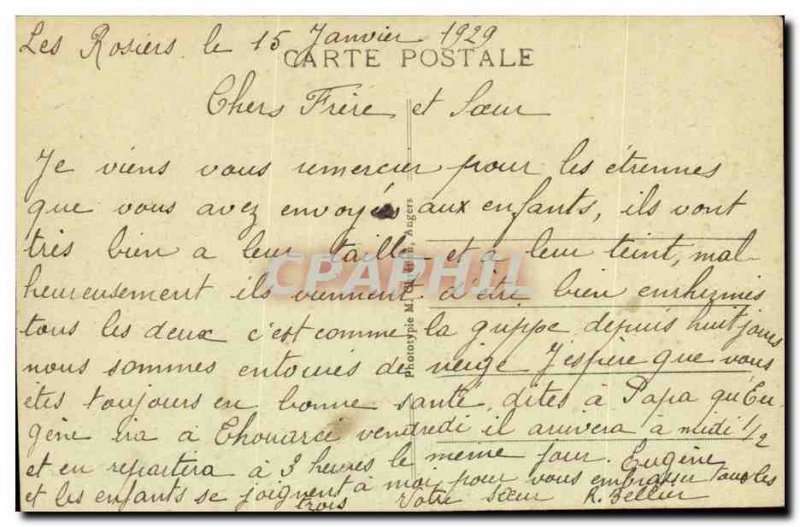 Les Rosiers le 15 Janvier 1929
CARTE POSTALE
Chers Frère et Sœur
Je viens vous remercier pour les étrennes
que vous avez envoyés aux enfants, ils vont
très bien a leur taille et a leur teint, mal-
heureusement ils viennent d'être bien enrhumés
tous les deux c'est comme la grippe depuis huit jours
nous sommes entourés de neige J'espère que vous
êtes toujours en bonne santé, dites à Papa qu'Eu-
gène ira à Thouarcé vendredi il arrivera à midi 1/2
et en repartira à 3 heures le même jour. Eugène
et les enfants se joignent à moi pour vous embrasser tous les
trois Votre sœur R. Bellier
Phototypie M. Angers
CPAPHIL